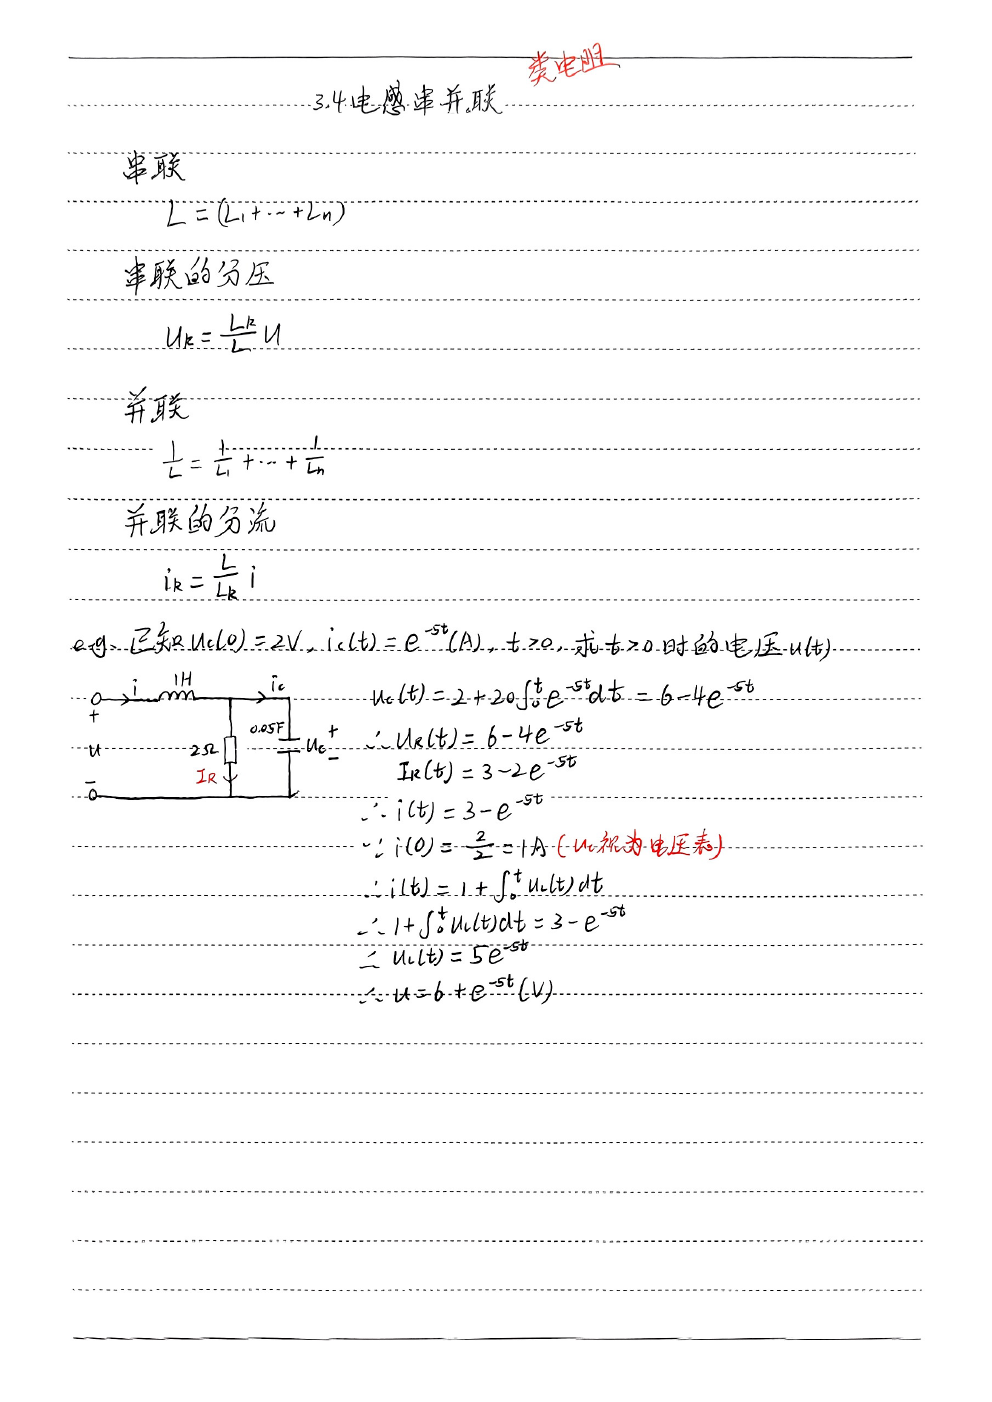 类电阻
3.4 电感串并联
串联
L = (L₁ + ⋯ + Lₙ)
串联的分压
u_k = L_k/L u
并联
1/L = 1/L₁ + ⋯ + 1/Lₙ
并联的分流
i_k = L/L_k i
e.g. 已知 u_c(0) = 2V, i_c(t) = e^{-5t}(A), t>0, 求 t>0 时的电压 u(t)
i 1H i_c
+ u −
2Ω
I_R
0.05F
u_c + −
u_c(t) = 2 + 20∫₀ᵗ e^{-5t}dt = 6 − 4e^{-5t}
∴ u_R(t) = 6 − 4e^{-5t}
I_R(t) = 3 − 2e^{-5t}
∴ i(t) = 3 − e^{-5t}
∵ i(0) = 2/2 = 1A (u_c视为电压表)
∴ i(t) = 1 + ∫₀ᵗ u_L(t)dt
∴ 1 + ∫₀ᵗ u_L(t)dt = 3 − e^{-5t}
∴ u_L(t) = 5e^{-5t}
∴ u = 6 + e^{-5t}(V)